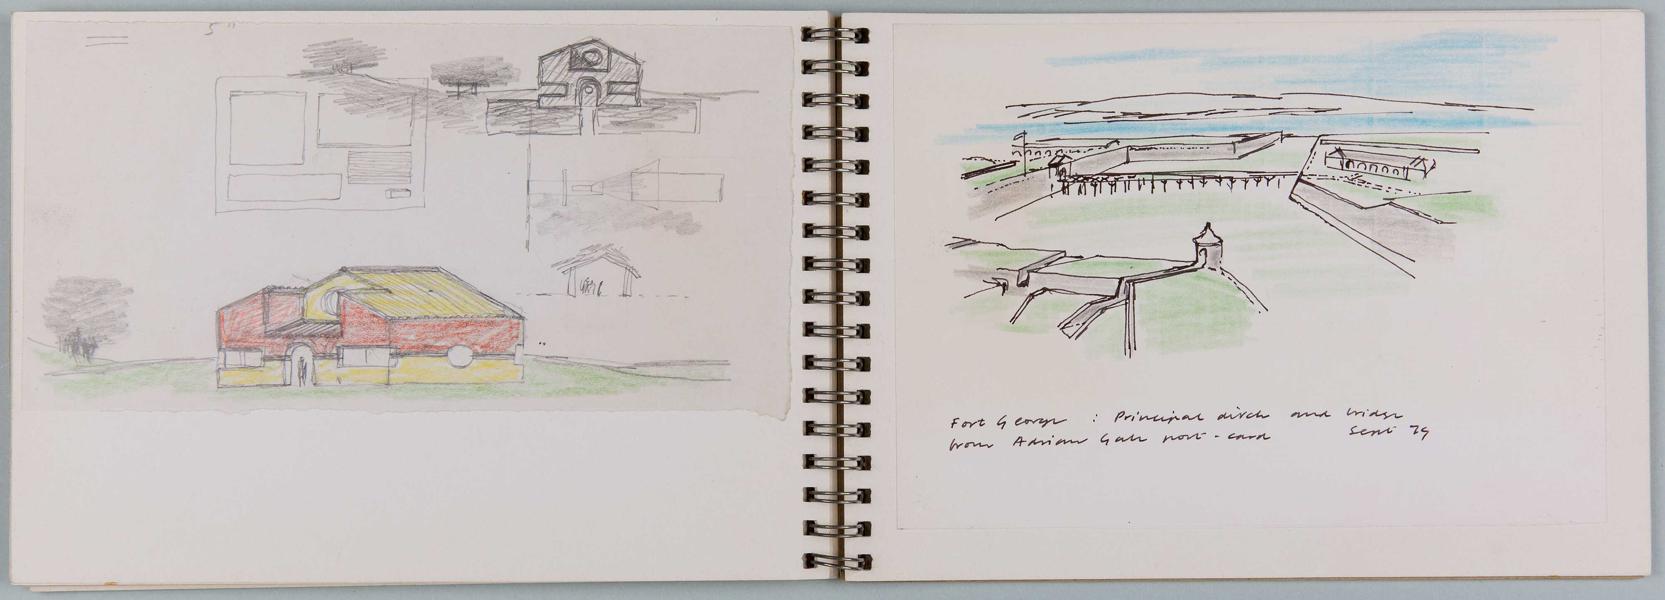 5"
Fort George : Principal ditch and bridge
from Adrian Gale post-card Sept 79